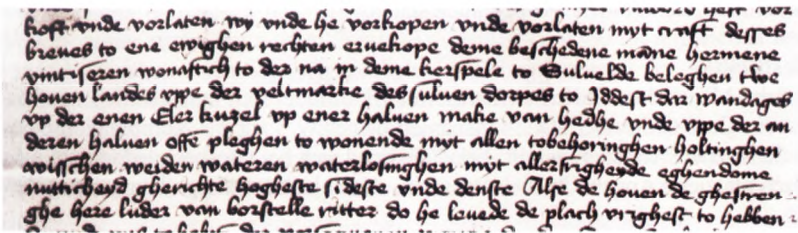 koft vnde vorlaten wy vnde he vorkopen vnde vorlaten myt craft desses
breues to ene ewighen rechten eruekope deme beschedene mãne hermene
vintiseren wonaftich to der na in deme kerspele to Suluelde beleghen twe
houen landes vppe der veltmarke des suluen dorpes to Jddest dar wandages
vp der enen Eler kuzel vp ener haluen make van hedhe vnde vppe der an
deren haluen offe pleghen to wonende myt allen tobehoringhen holtinghen
wisschen weiden wateren waterlosinghen myt aller vrigheyde eghendome
nutticheyd gherichte hogheste sideste vnde denste Alse de houen de ghestren
ghe here luder van borstelle ritter do he leuede de plach vrighest to hebben